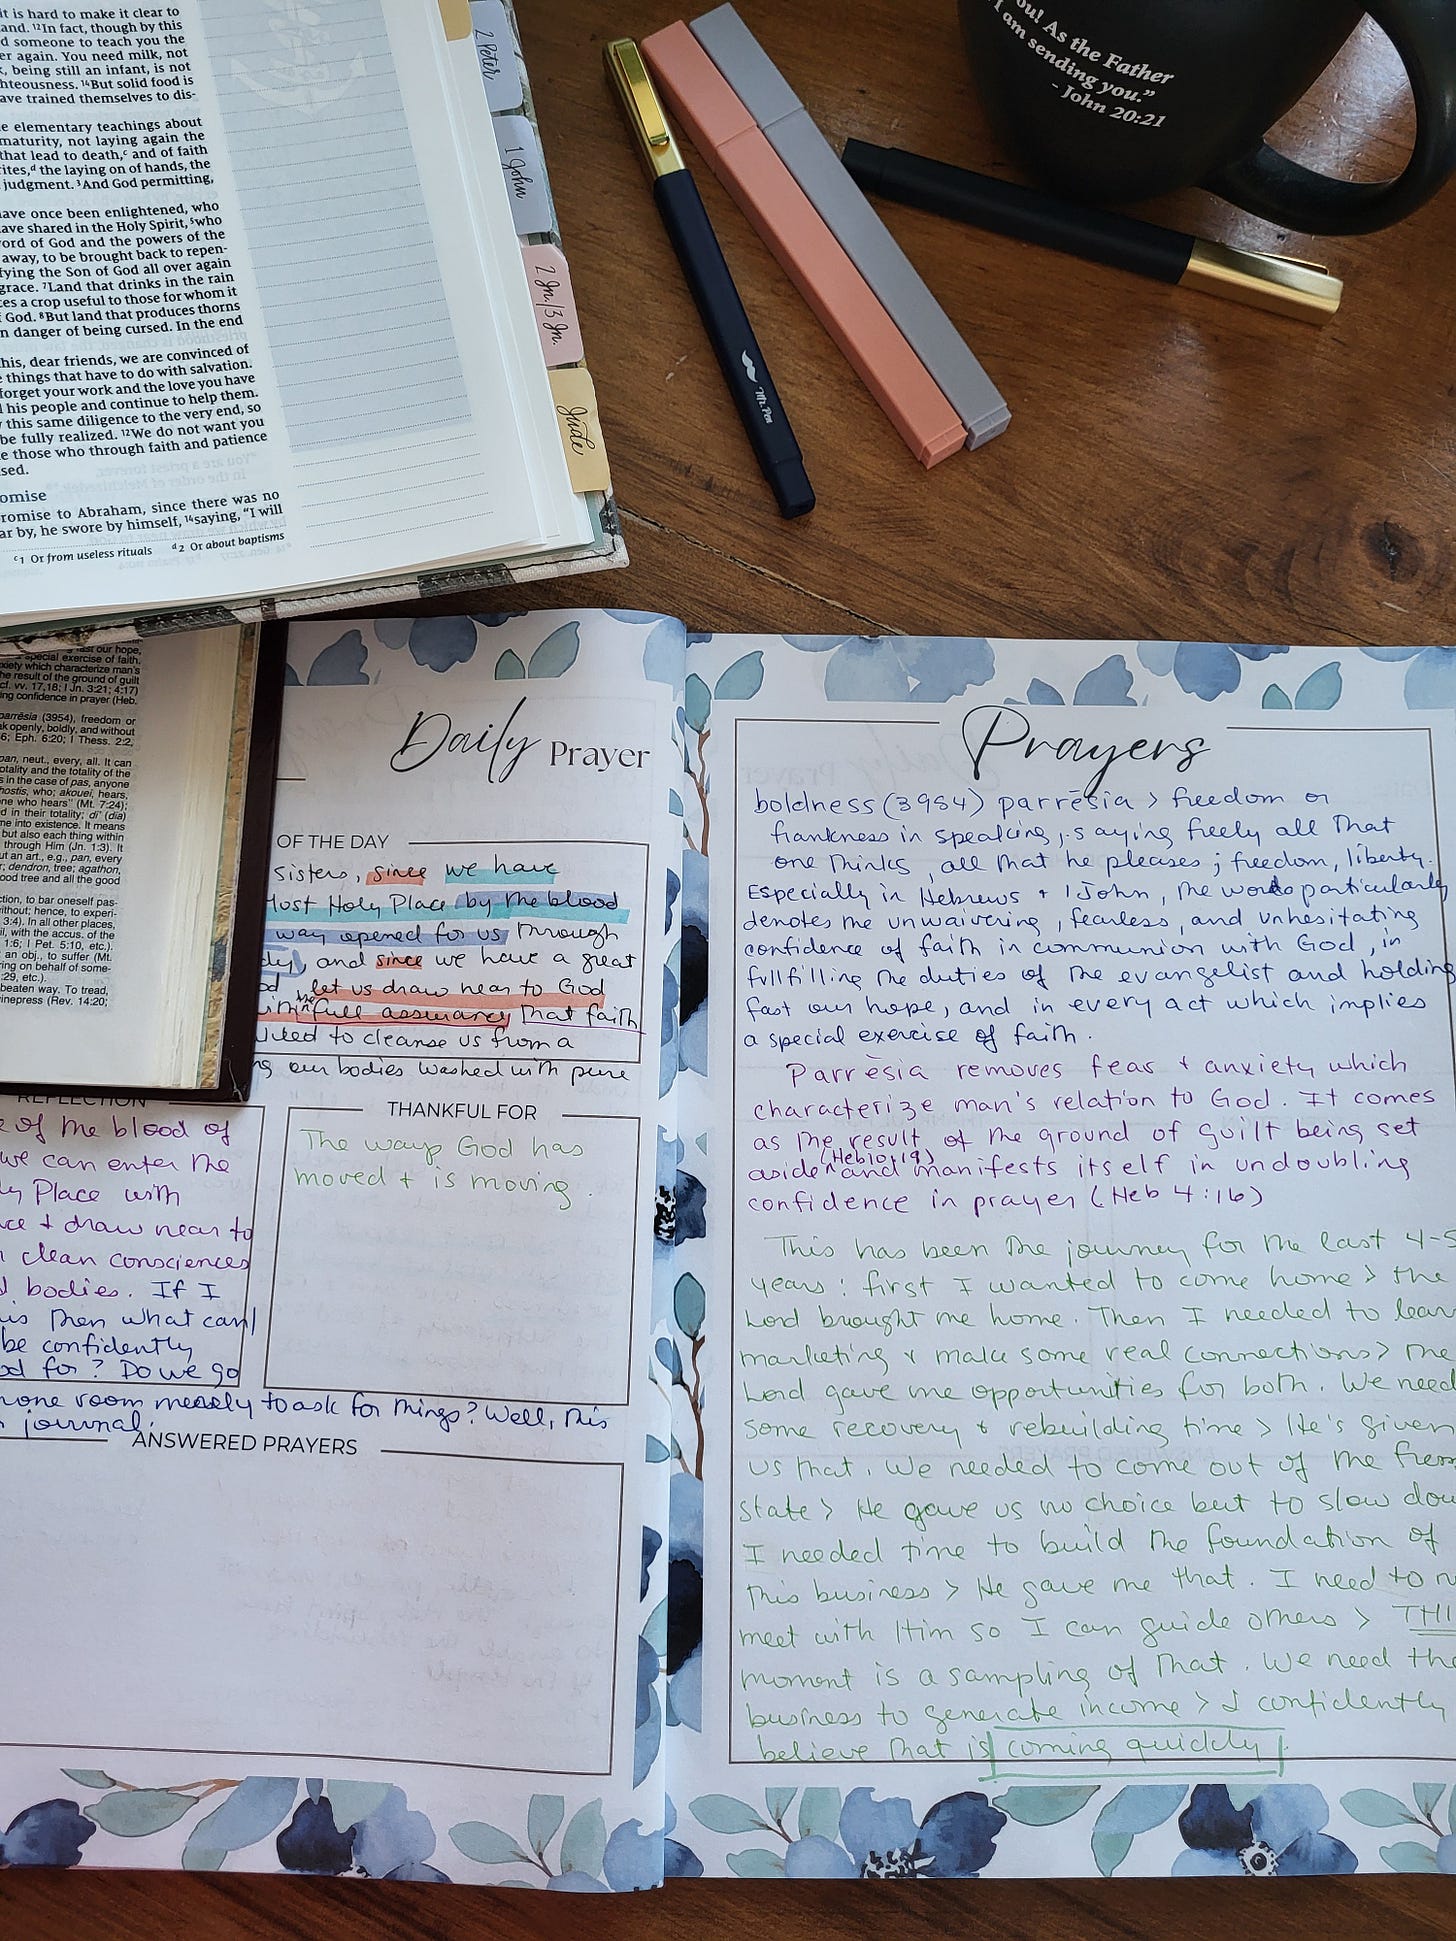 it is hard to make it clear to
and. 12In fact, though by this
d someone to teach you the
er again. You need milk, not
, being still an infant, is not
hteousness. 14But solid food is
ave trained themselves to dis-
e elementary teachings about
maturity, not laying again the
that lead to death,c and of faith
rites,d the laying on of hands, the
judgment. 3And God permitting,
ave once been enlightened, who
ave shared in the Holy Spirit, 5who
ord of God and the powers of the
away, to be brought back to repen-
fying the Son of God all over again
grace. 7Land that drinks in the rain
ces a crop useful to those for whom it
God. 8But land that produces thorns
n danger of being cursed. In the end
his, dear friends, we are convinced of
e things that have to do with salvation.
forget your work and the love you have
d his people and continue to help them.
this same diligence to the very end, so
be fully realized. 12We do not want you
e those who through faith and patience
sed.
omise
romise to Abraham, since there was no
ar by, he swore by himself, 14saying, "I will
c1 Or from useless rituals d2 Or about baptisms
2 Peter
1 John
2 Jn./3 Jn.
Jude
Mr. Pen
ou! As the Father
I am sending you."
- John 20:21
ast our hope,
special exercise of faith.
xiety which characterize man's
he result of the ground of guilt
cf. vv. 17,18; I Jn. 3:21; 4:17)
ing confidence in prayer (Heb.
parrēsia (3954), freedom or
k openly, boldly, and without
6; Eph. 6:20; I Thess. 2:2,
pan, neut., every, all. It can
otality and the totality of the
s in the case of pas, anyone
hostis, who; akouei, hears.
ne who hears" (Mt. 7:24);
d in their totality; di' (dia)
me into existence. It means
but also each thing within
through Him (Jn. 1:3). It
ut an art., e.g., pan, every
r; dendron, tree; agathon,
ood tree and all the good
ction, to bar oneself pas-
ithout; hence, to experi-
3:4). In all other places,
, with the accus. of the
1:6; I Pet. 5:10, etc.).
an obj., to suffer (Mt.
ring on behalf of some-
:29, etc.).
beaten way. To tread,
inepress (Rev. 14:20;
Daily Prayer
OF THE DAY
sisters, since we have
Most Holy Place by the blood
way opened for us through
dy, and since we have a great
od let us draw near to God
with the full assurance that faith
to cleanse us from a
ng our bodies washed with pure
REFLECTION
e of the blood of
we can enter the
ly Place with
nce + draw near to
h clean consciences
d bodies. If I
is then what can I
be confidently
od for? Do we go
throne room merely to ask for things? Well, this
journal.
THANKFUL FOR
The ways God has
moved + is moving.
ANSWERED PRAYERS
Prayers
boldness (3954) parrēsia > freedom or
frankness in speaking, saying freely all that
one thinks, all that he pleases; freedom, liberty.
Especially in Hebrews + 1 John, the words particularly
denotes the unwaivering, fearless, and unhesitating
confidence of faith in communion with God, in
fullfilling the duties of the evangelist and holding
fast our hope, and in every act which implies
a special exercise of faith.
Parrèsia removes fear + anxiety which
characterize man's relation to God. It comes
as the result of the ground of guilt being set
aside (Heb 10:19) and manifests itself in undoubling
confidence in prayer (Heb 4:16)
This has been the journey for the last 4-5
years: first I wanted to come home > the
Lord brought me home. Then I needed to learn
marketing + make some real connections > the
Lord gave me opportunities for both. We need
some recovery + rebuilding time > He's given
us that. We needed to come out of the
state > He gave us no choice but to slow dow
I needed time to build the foundation of
this business > He gave me that. I need to
meet with Him so I can guide others > THIS
moment is a sampling of that. We need the
business to generate income > I confidently
believe that is coming quickly.